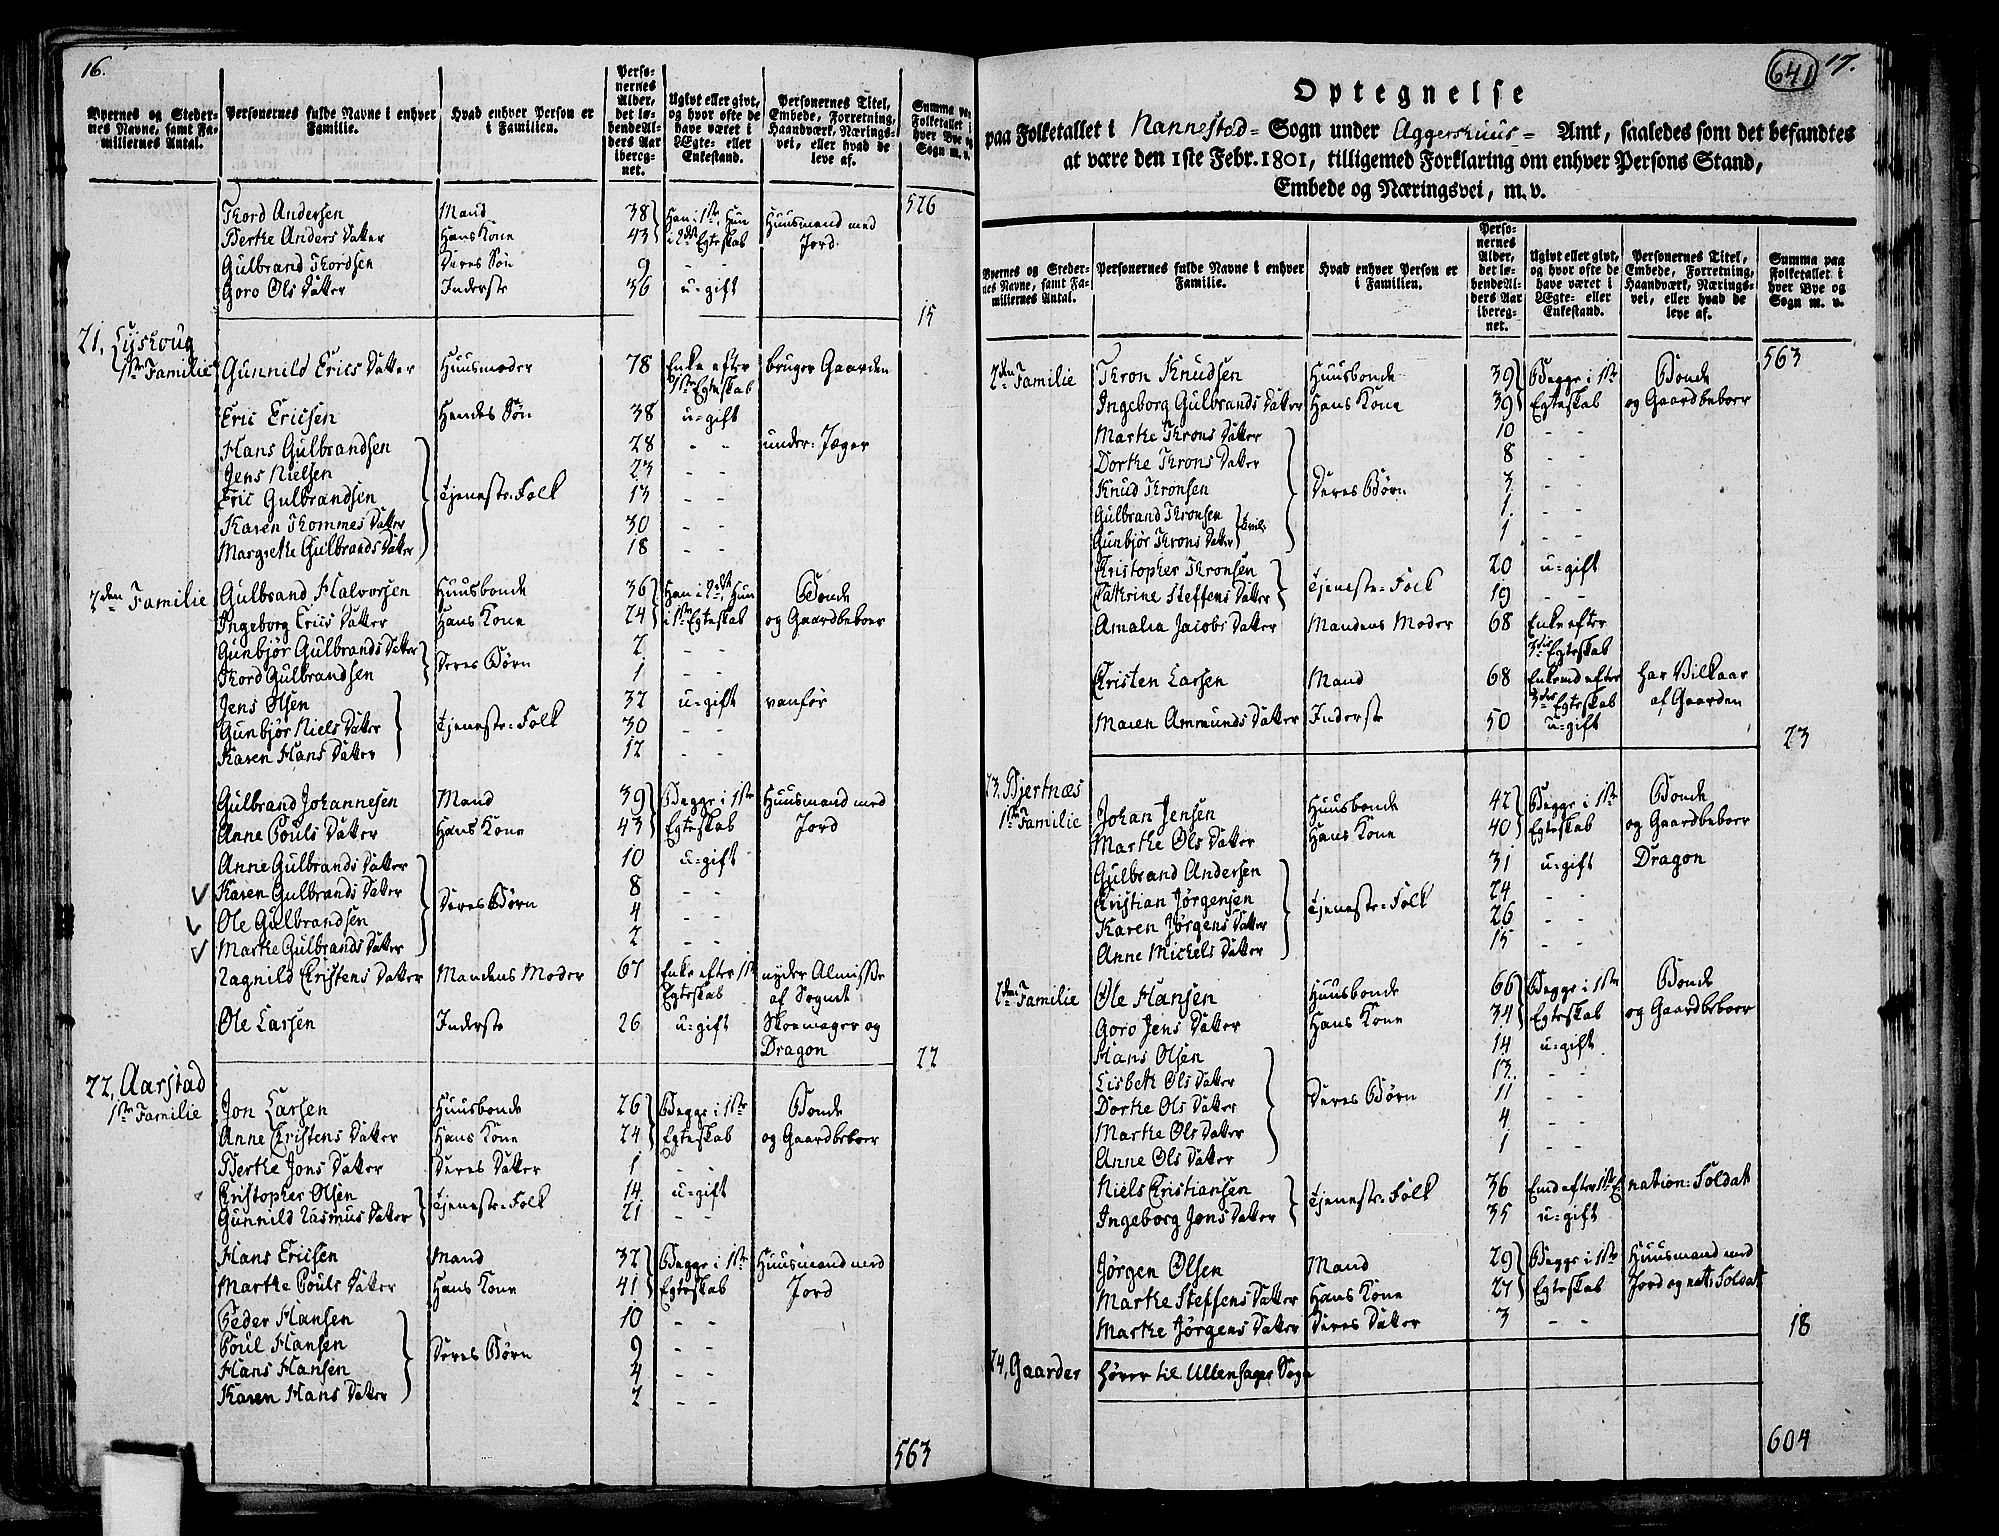 16.
Byernes og Steder-
nes Navne, samt Fa-
miliernes Antal.
Personernes fulde Navne i enhver
Familie.
Hvad enhver Person er
i Familien.
Perso-
nernes
Alder,
det lø-
bende Al-
ders Aar
iberegn-
net.
Ugivt eller givt,
og hvor ofte de
have været i
Ægte- eller
Enkestand.
Personernes Titel,
Embede, Forretning,
Haandværk, Nærings-
vei, eller hvad de
leve af.
Summa paa
Folketallet i
hver Bye og
Sogn m. v.
526
Thord Andersen Mand 38 Han i 1ste Hun Huusmand med
Berthe Anders Datter Hans Kone 43 i 2det Egteskab Jord
Gulbrand Thordsen Deres Søn 9 - -
Goro Ols Datter Inderste 36 u-gift
15
21, Lyshoug
1ste Familie Gunnild Erics Datter Huusmoder 78 Enke efter bruger Gaarden
1ste Egteskab
Eric Ericsen Hendes Søn 38 u-gift
Hans Gulbrandsen 28 - - under: Jæger
Jens Nielsen 23 - -
Eric Gulbrandsen Tjeneste-Folk 13 - -
Karen Thommes Datter 30 - -
Margrethe Gulbrands Datter 18 - -
2den Familie Gulbrand Halvorsen Huusbonde 36 Han i 2det, Hun Bonde
Ingeborg Erics Datter Hans Kone 24 i 1ste Egteskab og Gaardbeboer
Gunbjør Gulbrands Datter Deres Børn 2 - -
Thord Gulbrandsen 1 - -
Jens Olsen 32 u-gift vanfør
Gunbjør Niels Datter Tjeneste-Folk 30 - -
Karen Hans Datter 12 - -
Gulbrand Johannesen Mand 39 Begge i 1ste Huusmand med
Anne Pouls Datter Hans Kone 43 Egteskab Jord
Anne Gulbrands Datter 10 u-gift
Karen Gulbrands Datter Deres Børn 8 - -
Ole Gulbrandsen 4 - -
Marthe Gulbrands Datter 2 - -
Ragnild Christens Datter Mandens Moder 67 Enke efter 1ste nyder Almisse
Egteskab af Sognet
Ole Larsen Inderste 26 u-gift Skoemager og
Dragon
22
22, Aarstad
1ste Familie Jon Larsen Huusbonde 26 Begge i 1ste Bonde
Anne Christens Datter Hans Kone 24 Egteskab og Gaardbeboer
Berthe Jons Datter Deres Datter 1 - -
Christopher Olsen Tjeneste-Folk 14 u-gift
Gunnild Rasmus Datter 21 - -
Hans Ericsen Mand 32 Begge i 1ste Huusmand med
Marthe Pouls Datter Hans Kone 41 Egteskab Jord
Peder Hansen 10 - -
Poul Hansen Deres Børn 9 - -
Hans Hansen 4 - -
Karen Hans Datter 2 - -
563
641
17.
Optegnelse
paa Folketallet i Nannestad- Sogn under Aggershuus- Amt, saaledes som det befandtes
at være den 1ste Febr. 1801, tilligemed Forklaring om enhver Persons Stand,
Embede og Næringsvei, m. v.
Byernes og Steder-
nes Navne, samt Fa-
miliernes Antal.
Personernes fulde Navne i enhver
Familie.
Hvad enhver Person er
i Familien.
Perso-
nernes
Alder,
det lø-
bende Al-
ders Aar
iberegn-
net.
Ugivt eller givt,
og hvor ofte de
have været i
Ægte- eller
Enkestand.
Personernes Titel,
Embede, Forretning,
Haandværk, Nærings-
vei, eller hvad de
leve af.
Summa paa
Folketallet i
hver Bye og
Sogn m. v.
563
2den Familie Thron Knudsen Huusbonde 39 Begge i 1ste Bonde
Ingeborg Gulbrands Datter Hans Kone 39 Egteskab og Gaardbeboer
Marthe Throns Datter 10 - -
Dorthe Throns Datter 8 - -
Knud Thronsen Deres Børn 3 - -
Gulbrand Thronsen 1 - -
Gunbjør Throns Datter 1 - -
Christopher Thronsen Tjeneste-Folk 20 u-gift
Cathrine Steffens Datter 19 - -
Amalia Jacobs Datter Mandens Moder 68 Enke efter
3die Egteskab
Christen Larsen Mand 68 Enkemd efter har Vilkaar
3die Egteskab af Gaarden
Maren Ammunds Datter Inderste 50 u-gift
23
23, Bjertnæs
1ste Familie Johan Jensen Huusbonde 42 Begge i 1ste Bonde
Marthe Ols Datter Hans Kone 40 Egteskab og Gaardbeboer
Gulbrand Andersen 31 u-gift Dragon
Christian Jørgensen Tjeneste-Folk 24 - -
Karen Jørgens Datter 26 - -
Anne Michels Datter 15 - -
2den Familie Ole Hansen Huusbonde 66 Begge i 1ste Bonde
Goro Jens Datter Hans Kone 34 Egteskab og Gaardbeboer
Hans Olsen 14 u-gift
Lisbeth Ols Datter 13 - -
Dorthe Ols Datter Deres Børn 11 - -
Marthe Ols Datter 4 - -
Anne Ols Datter 1 - -
Niels Christiansen Tjeneste-Folk 36 Emd efter 1ste E nation: Soldat
Ingeborg Jons Datter 35 u-gift
Jørgen Olsen Mand 29 Begge i 1ste Huusmand med
Marthe Steffens Datter Hans Kone 27 Egteskab Jord og nat: Soldat
Marthe Jørgens Datter Deres Datter 3 - -
18
24, Gaarder hører til Ullensager Sogn
604